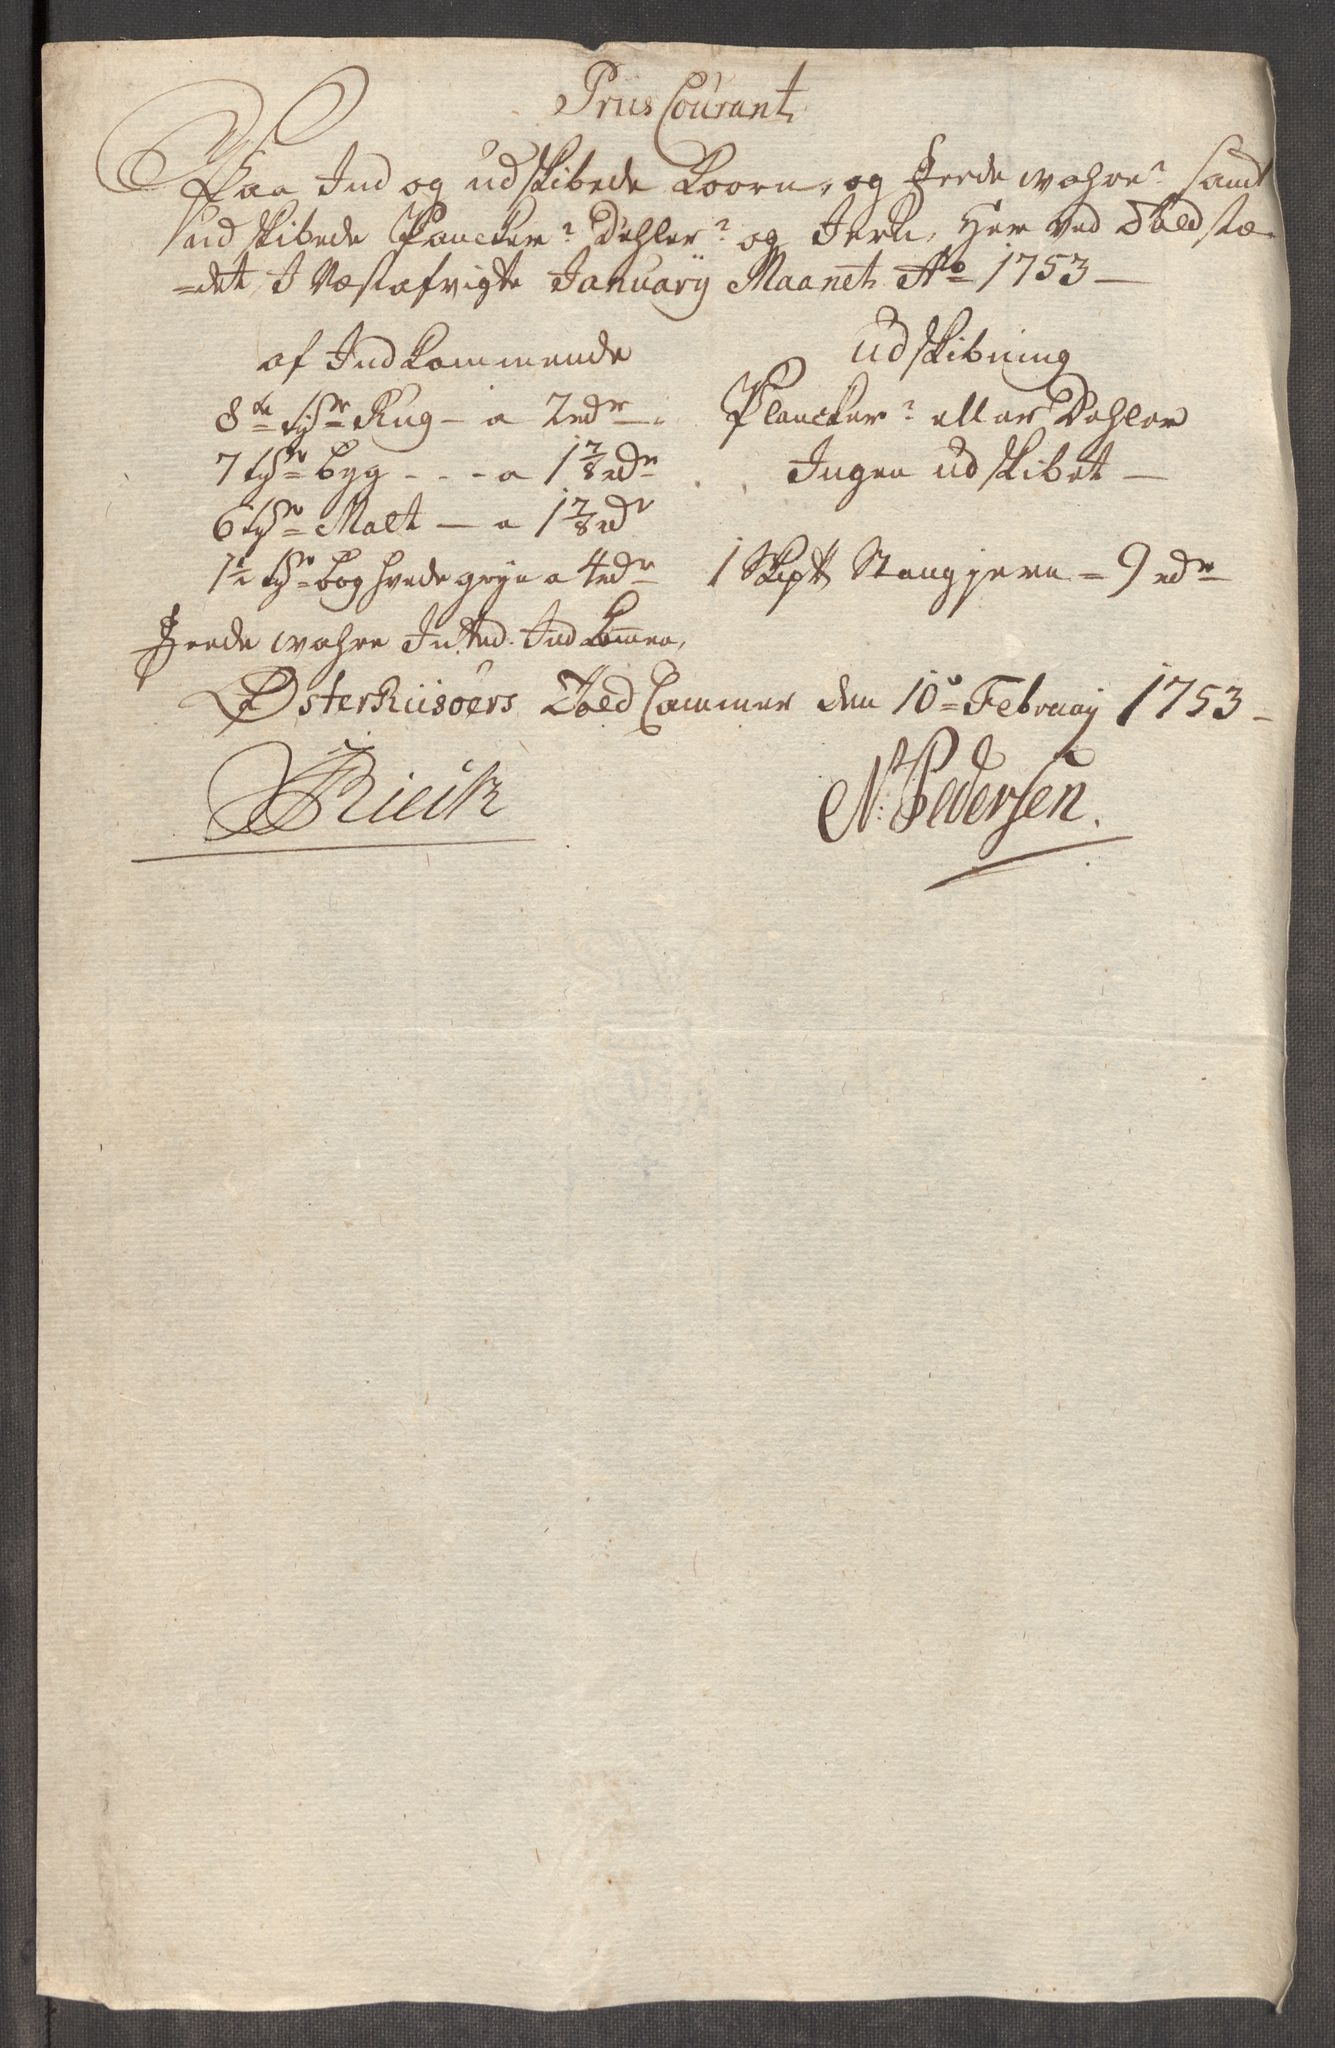 Priis Courant
Paa Ind og udskibede Koorn, og Feede wahre? samt
udskibede Plancker? Dehler? og Jern, Her ved Toldstæ
=det, J Næstafvigte January Maanet Ao 1753 —
af Indkommende
8de tdr Rug — a 2 rdr
7 tdr byg - - - a 1 7/8 rdr
6 tdr Malt — a 1 7/8 rdr
1 1/2 tdr boghvede gryn a 4 rdr
Feede wahre Inted Indkommen,
udskibning
Plancker? eller Dehler
Ingen udskibet —
1 Skipt Stangjern = 9 rdr
ØsterRiisøers Told Cammer den 10de February 1753 —
N. Pedersen.